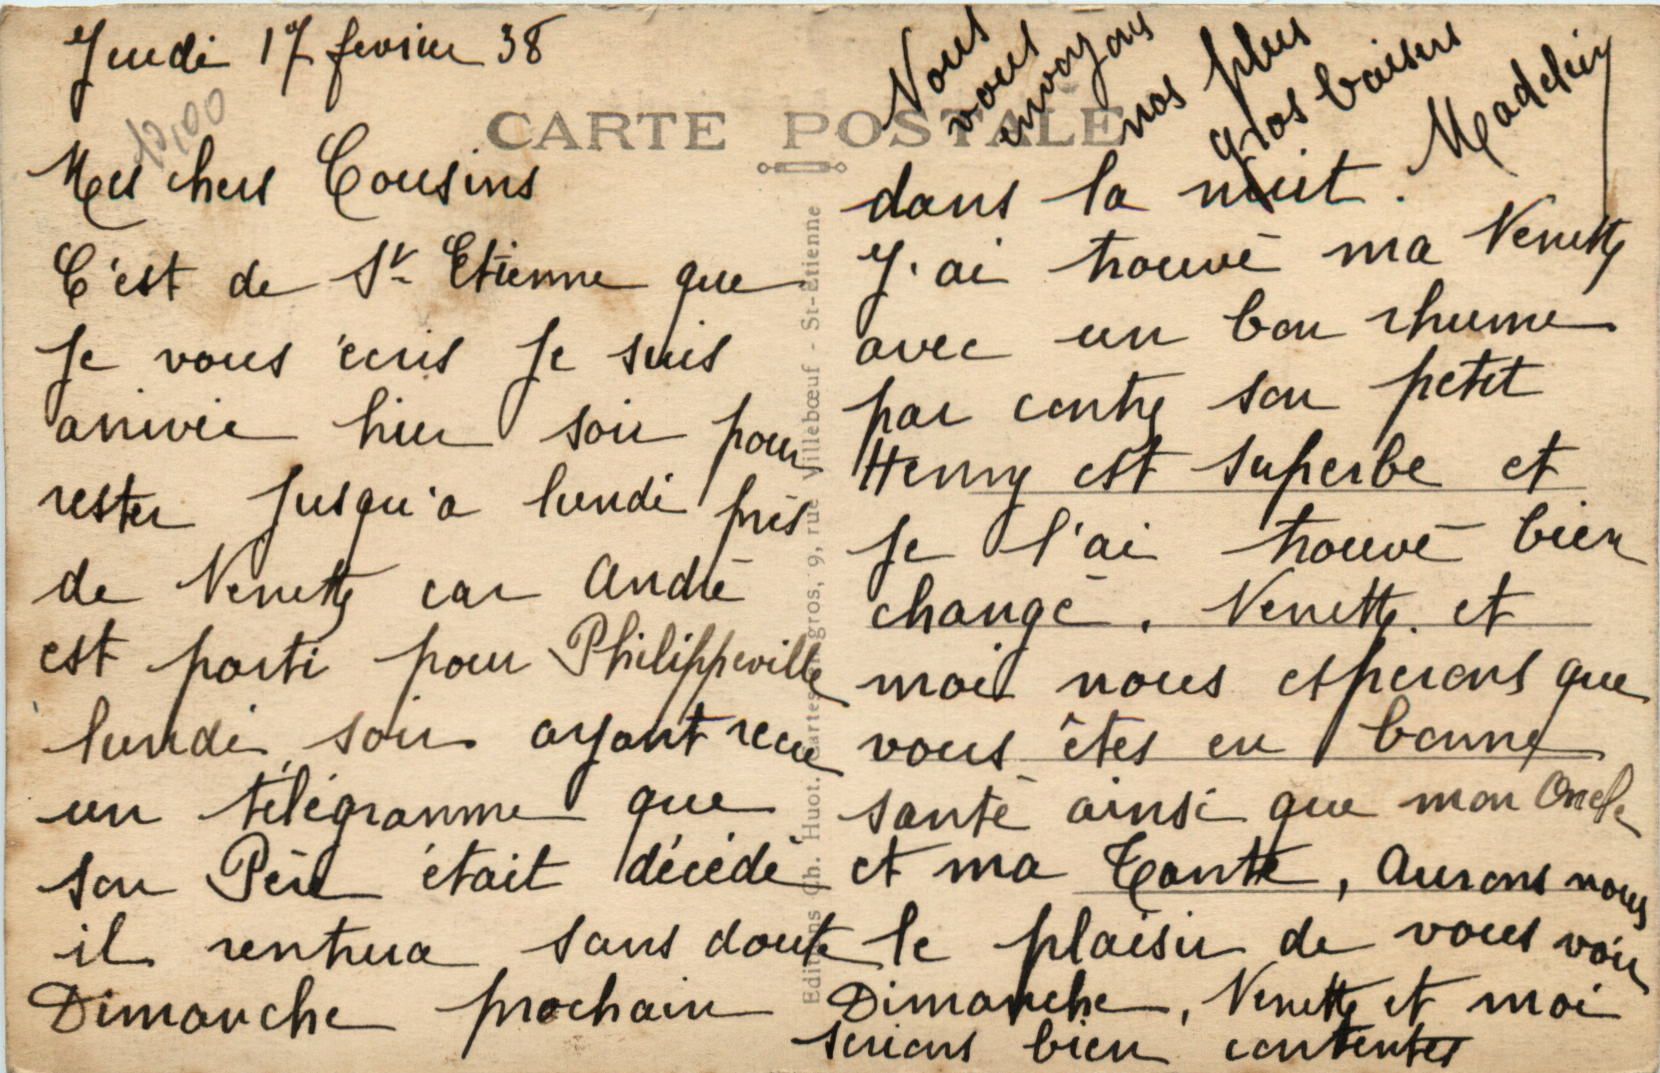 Jeudi 17 fevrier 38
12,00
CARTE POSTALE
Mes chers Cousins
C'est de St Etienne que
je vous écris je suis
arrivée hier soir pour
rester jusqu'a lundi près
de Nenette car André
est parti pour Philippeville
lundi soir ayant recu
un télégramme que
son Père était décédé
il rentrera sans doute
Dimanche prochain
dans la nuit.
J'ai trouvé ma Nenette
avec un bon rhume
par contre son petit
Henry est superbe et
je l'ai trouvé bien
changé. Nenette et
moi nous esperons que
vous êtes en bonne
santé ainsi que mon Oncle
et ma Tante, Aurons nous
le plaisir de vous voir
Dimanche, Nenette et moi
serions bien contentes
Nous
vous
envoyons
nos plus
gros baisers
Madeleine
Editions Ch. Huot. Cartes en gros, 9, rue Villebœuf - St-Etienne